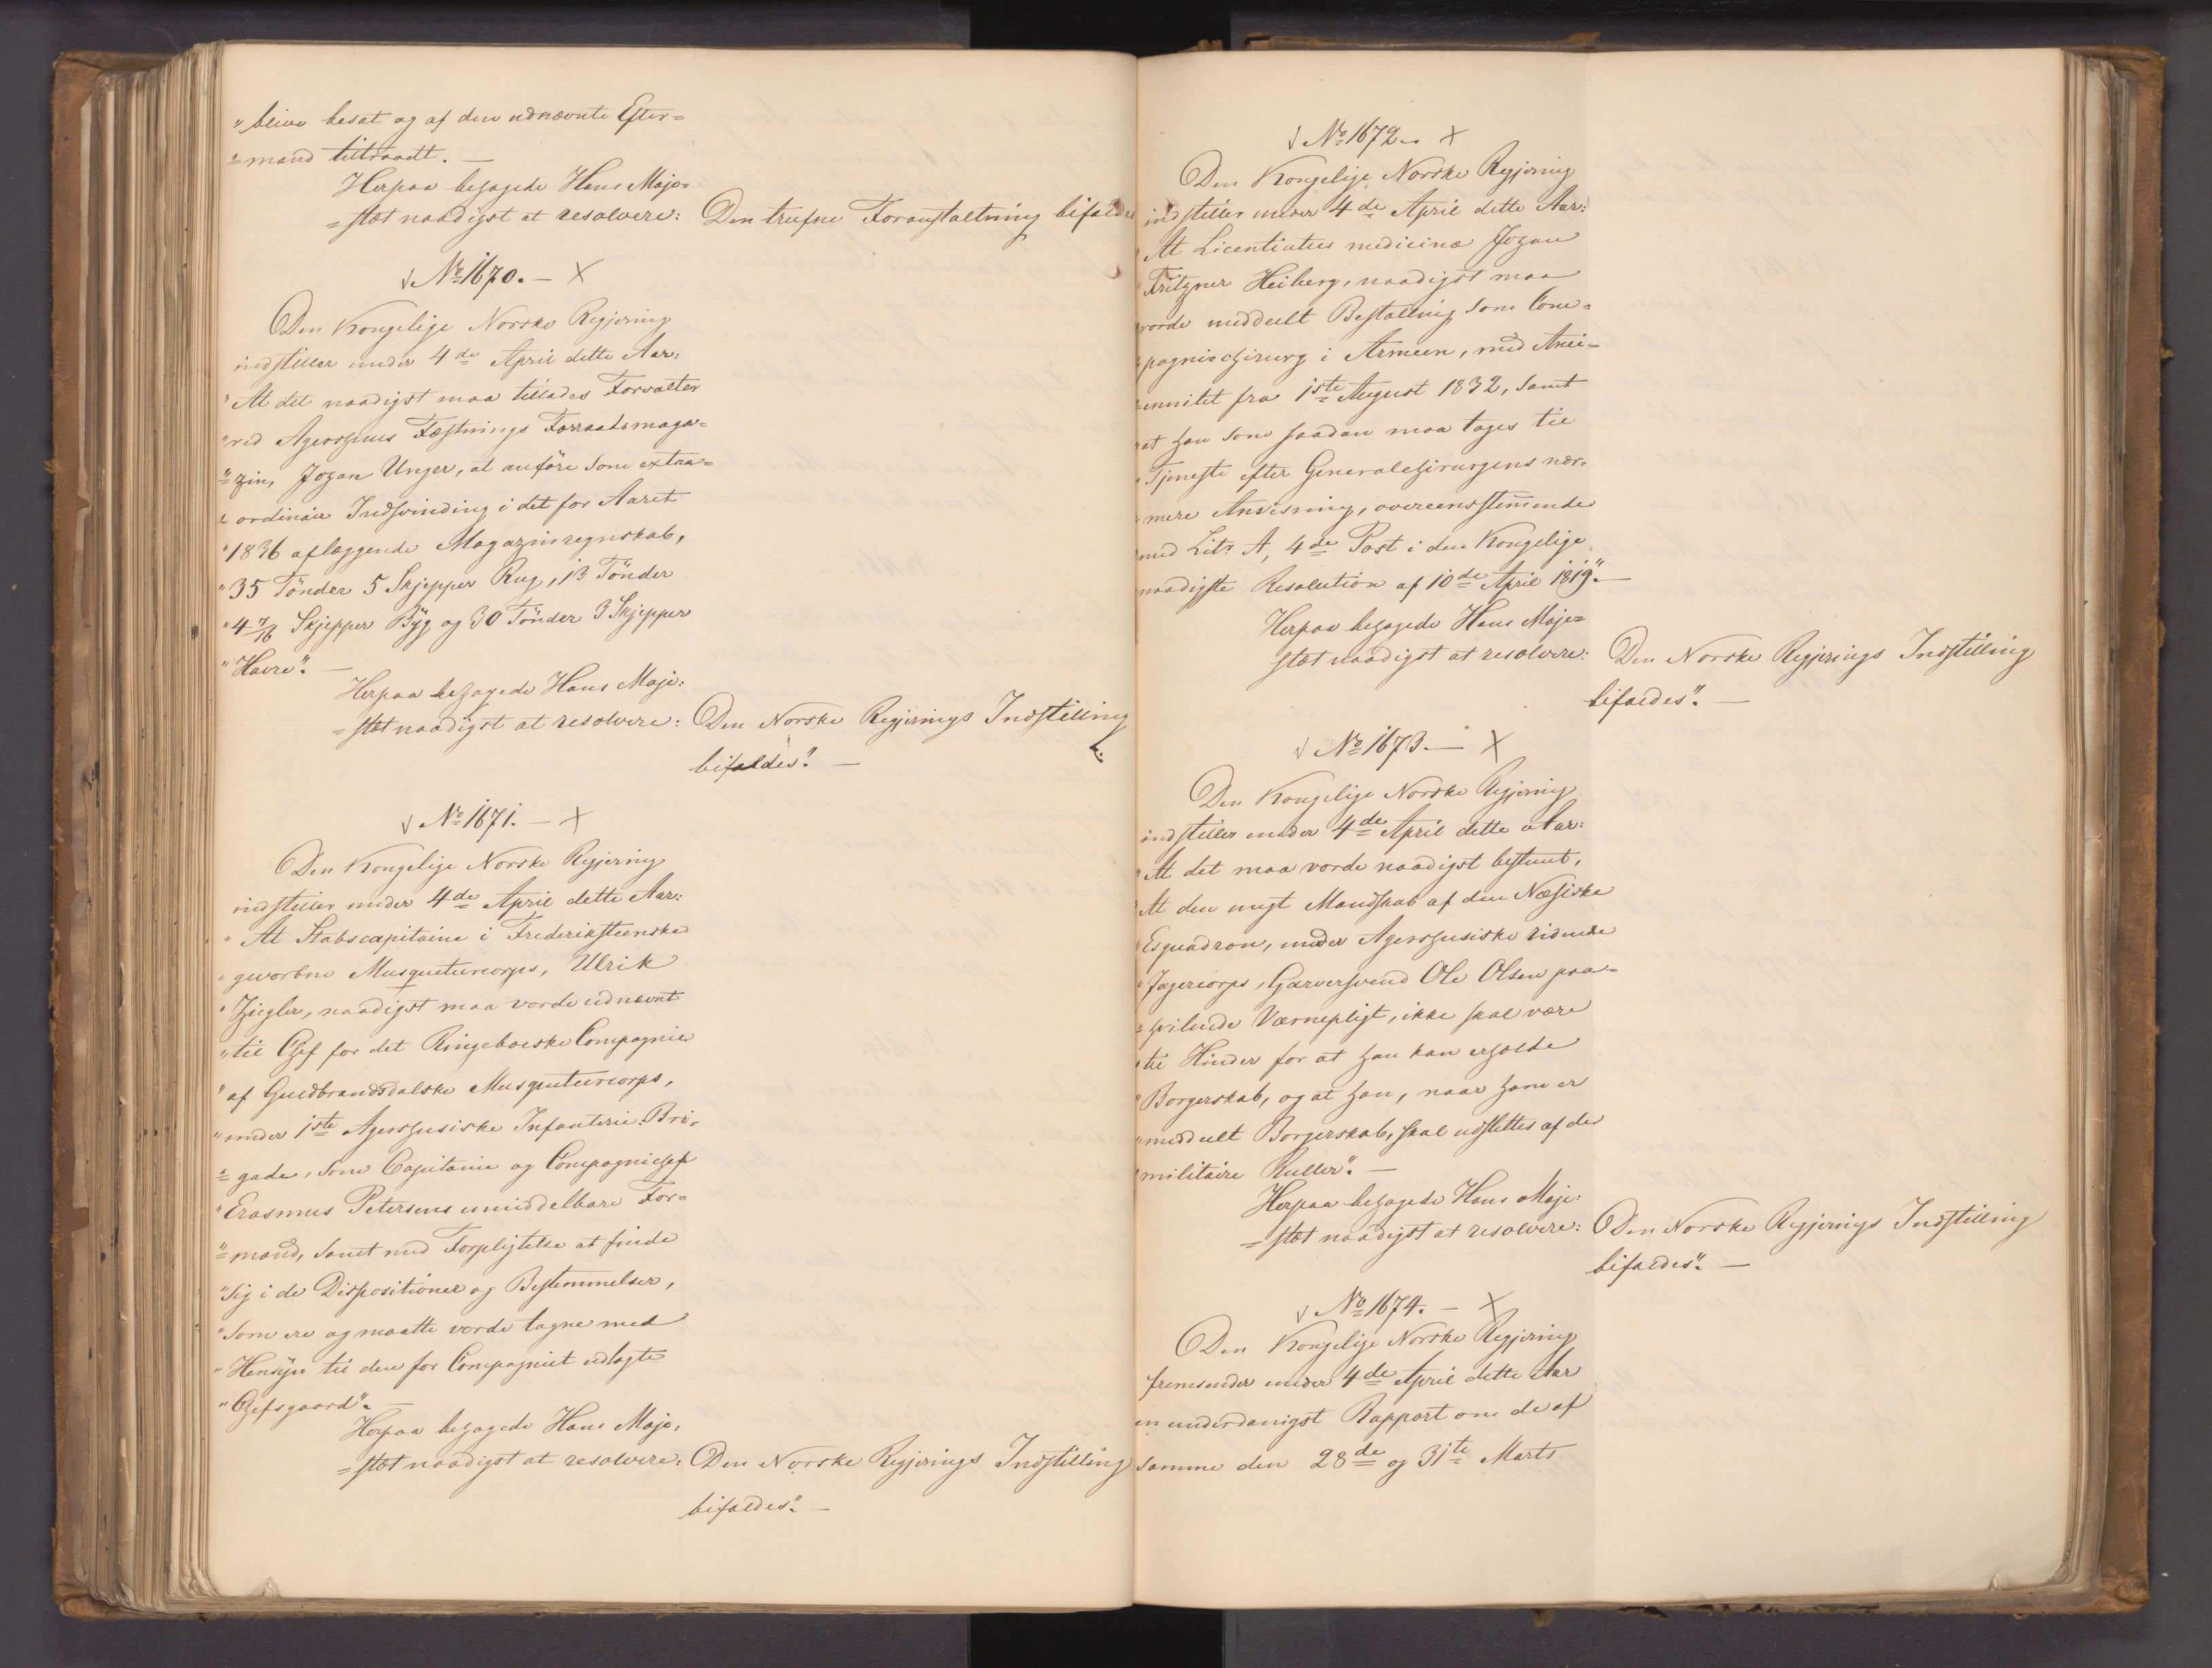 "blive besat og af den udnævnte Efter=
"=mand tiltraadt. —
Herpaa behagede Hans Maje=
=stæt naadigst at resolvere: Den trufne Foranstaltning bifaldes
√ No 1670. — X
Den Kongelige Norske Regjering
indstiller under 4de April dette Aar:
"At det naadigst maa tillades Forvalter
"ved Agershuus Fæstnings Forraadsmaga=
"=zin, Johan Unger, at anføre som extra=
"=ordinair Indsvinding i det for Aaret
"1836 aflæggende Magazinregnskab,
"35 Tönder 5 Skjepper Rug, 13 Tönder
"4 7/16 Skjepper Byg og 30 Tönder 3 Skjepper
"Havre". —
Herpaa behagede Hans Maje:
=stæt naadigst at resolvere: Den Norske Regjerings Indstilling
bifaldes". —
√ No 1671. — X
Den Kongelige Norske Regjering
indstiller under 4de April dette Aar:
"At Stabscapitaine i Frederiksteenske
"gevorbne Musqueteercorps, Ulrik
"Ziegler, naadigst maa vorde udnævnt
"til Chef for det Ringeboeske Compagnie
"af Guldbrandsdalske Musqueteercorps,
"under 1ste Agershusiske Infanterie-Bri=
"=gade, som Capitaine og Compagniechef
"Erasmus Petersens umiddelbare For=
"=mand, samt med Forpligtelse at finde
"sig i de Dispositioner og Bestemmelser,
"som ere og maatte vorde tagne med
"Hensyn til den for Compagniet udlagte
"Chefsgaard". —
Herpaa behagede Hans Maje=
=stæt naadigst at resolvere: Den Norske Regjerings Indstilling
bifaldes". —
√ No 1672. X
Den Kongelige Norske Regjering
indstiller under 4de April dette Aar:
"At Licentiatus medicinæ Johan
"Fritzner Heiberg, naadigst maa
vorde meddeelt Bestalling som Com=
=pagniechirurg i Armeen, med Anci=
=ennitet fra 1ste August 1832, samt
"at han som saadan maa tages til
"Tjeneste efter Generalchirurgens nær=
mere Anviisning, overeensstemmende
med Litr A, 4de Post i den Kongelige
naadigste Resolution af 10de April 1819". —
Herpaa behagede Hans Maje=
stæt naadigst at resolvere: Den Norske Regjerings Indstilling
bifaldes". —
√ No 1673. — X
Den Kongelige Norske Regjering
indstiller under 4de April dette Aar:
"At det maa vorde naadigst bestemt,
"At den ungt Mandskab af den Næsiske
"Esquadron, under Agershusiske ridende
"Jægercorps, Garversvend Ole Olsen paa=
"=hvilende Værnepligt, ikke skal være
"til Hinder for at han kan erholde
"Borgerskab, og at han, naar ham er
"meddeelt Borgerskab, skal udslettes af de
"militaire Ruller". —
Herpaa behagede Hans Maje:
=stæt naadigst at resolvere: Den Norske Regjerings Indstilling
bifaldes". —
√ No 1674. — X
Den Kongelige Norske Regjering
fremsender under 4de April dette Aar
en underdanigst Rapport om de af
samme den 28de og 31te Marts